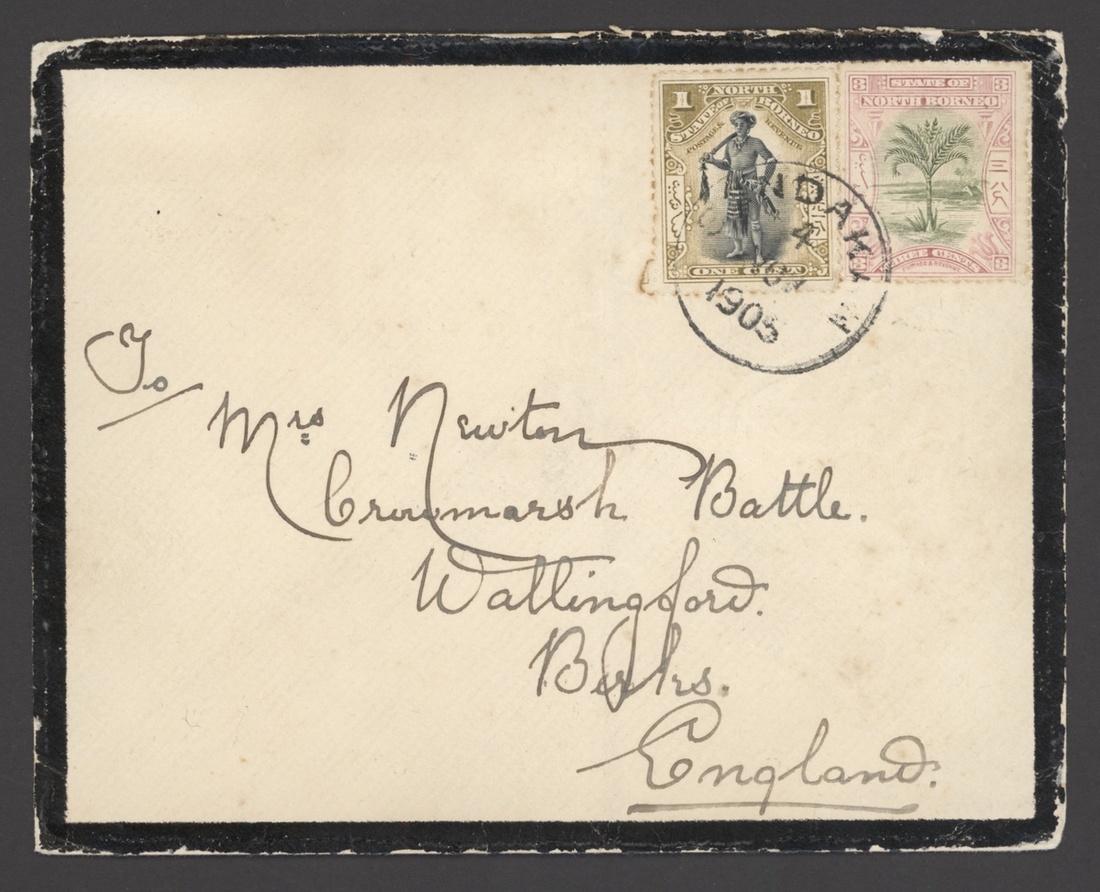 1 NORTH 1
STATE OF BORNEO
POSTAGE & REVENUE
ONE CENT
3 STATE OF 3
NORTH BORNEO
三
3 THREE CENTS 3
NDAKAN
4
1905
To
Mrs Newton
Crowmarsh Battle.
Wallingford.
Berks.
England.